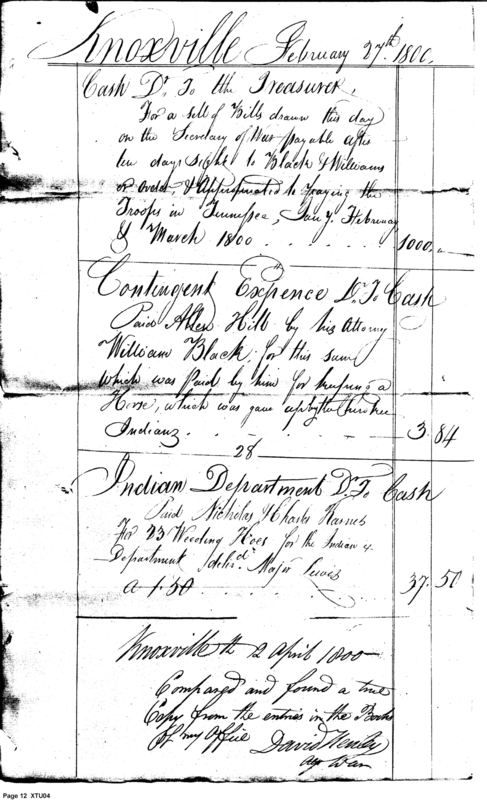 Knoxville February 27th. 1800.
Cash Dr. To the Treasurer,
For a sett of Bills drawn this day
on the Secretary of War payable after
ten days Sight to Black & Williams
or order, & Appropriated to paying the
Troops in Tennessee, Jany. February,
& March 1800 . . . . . . 1000. "
Contingent Expence Dr. To Cash
Paid Allen Hill by his Attorney
William Black, for this sum
which was paid by him for keeping a
Horse, which was gave up by the Cherokee
Indians . . . . . . 3. 84
28
Indian Department Dr. To Cash
Paid Nicholas & Charles
For Weeding Hoes for the Indian
Department delivd. Major Lewis
a 1.50 . . . . . . 37. 50
Knoxville 2 April 1800
Compared and found a true
Copy from the entries in the Books
of my Office David Henley
Page 12 XTU04